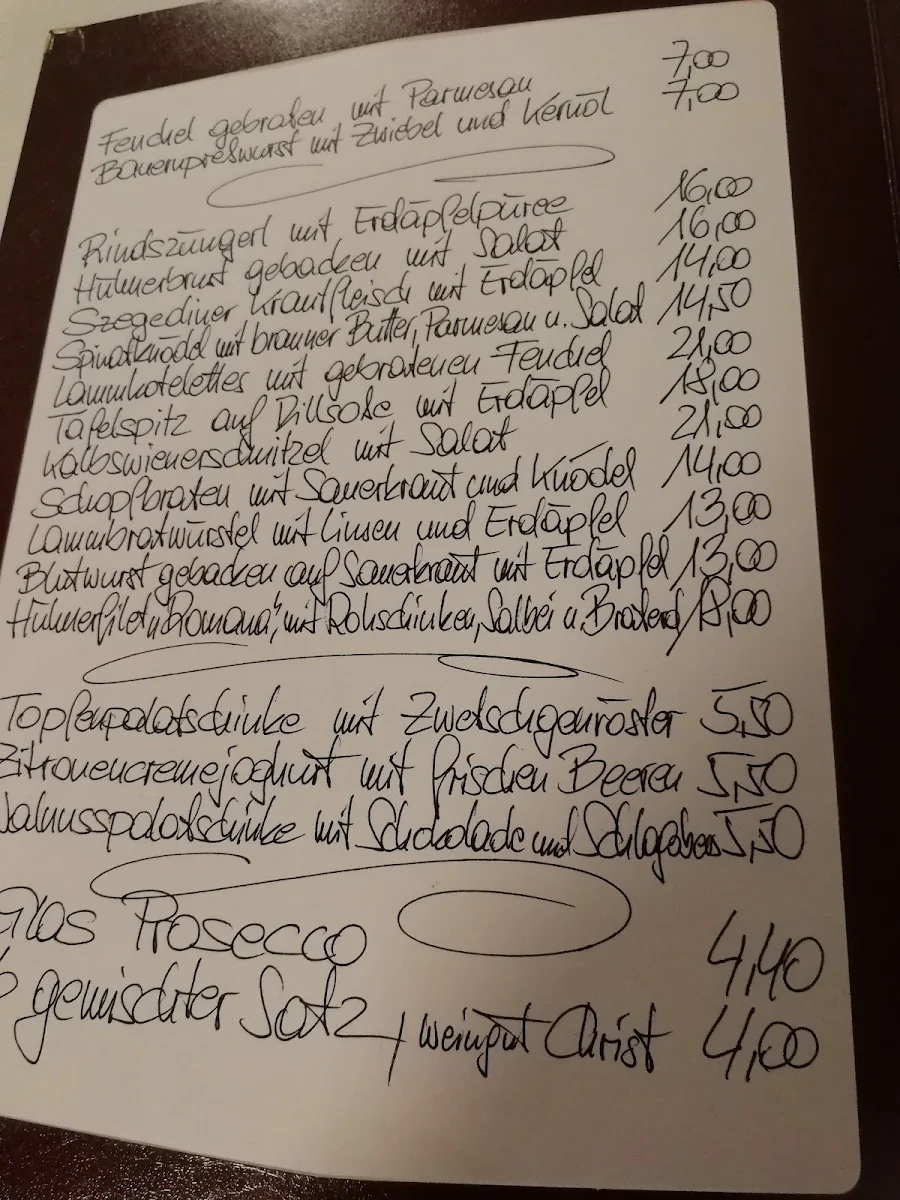 Fenchel gebraten mit Parmesan 7,00
Bauernpreßwurst mit Zwiebel und Kernöl 7,00
Rindszüngerl mit Erdäpfelpüree 16,00
Hühnerbrust gebacken mit Salat 16,00
Szegediner Krautfleisch mit Erdäpfel 14,00
Spinatknödel mit brauner Butter, Parmesan u. Salat 14,50
Lammkotelettes mit gebratenen Fenchel 21,00
Tafelspitz auf Dillsoße mit Erdäpfel 18,00
Kalbswienerschnitzel mit Salat 21,00
Schopfbraten mit Sauerkraut und Knödel 14,00
Lammbratwürstel mit Linsen und Erdäpfel 13,00
Blutwurst gebacken auf Sauerkraut mit Erdäpfel 13,00
Hühnerfilet "Romana", mit Rohschinken, Salbei u. Braterd/ 18,00
Topfenpalatschinke mit Zwetschgenröster 5,50
Zitronencremejoghurt mit frischen Beeren 5,50
Walnusspalatschinke mit Schokolade und Schlagobers 5,50
Glas Prosecco 4,40
gemischter Satz / Weingut Christ 4,00